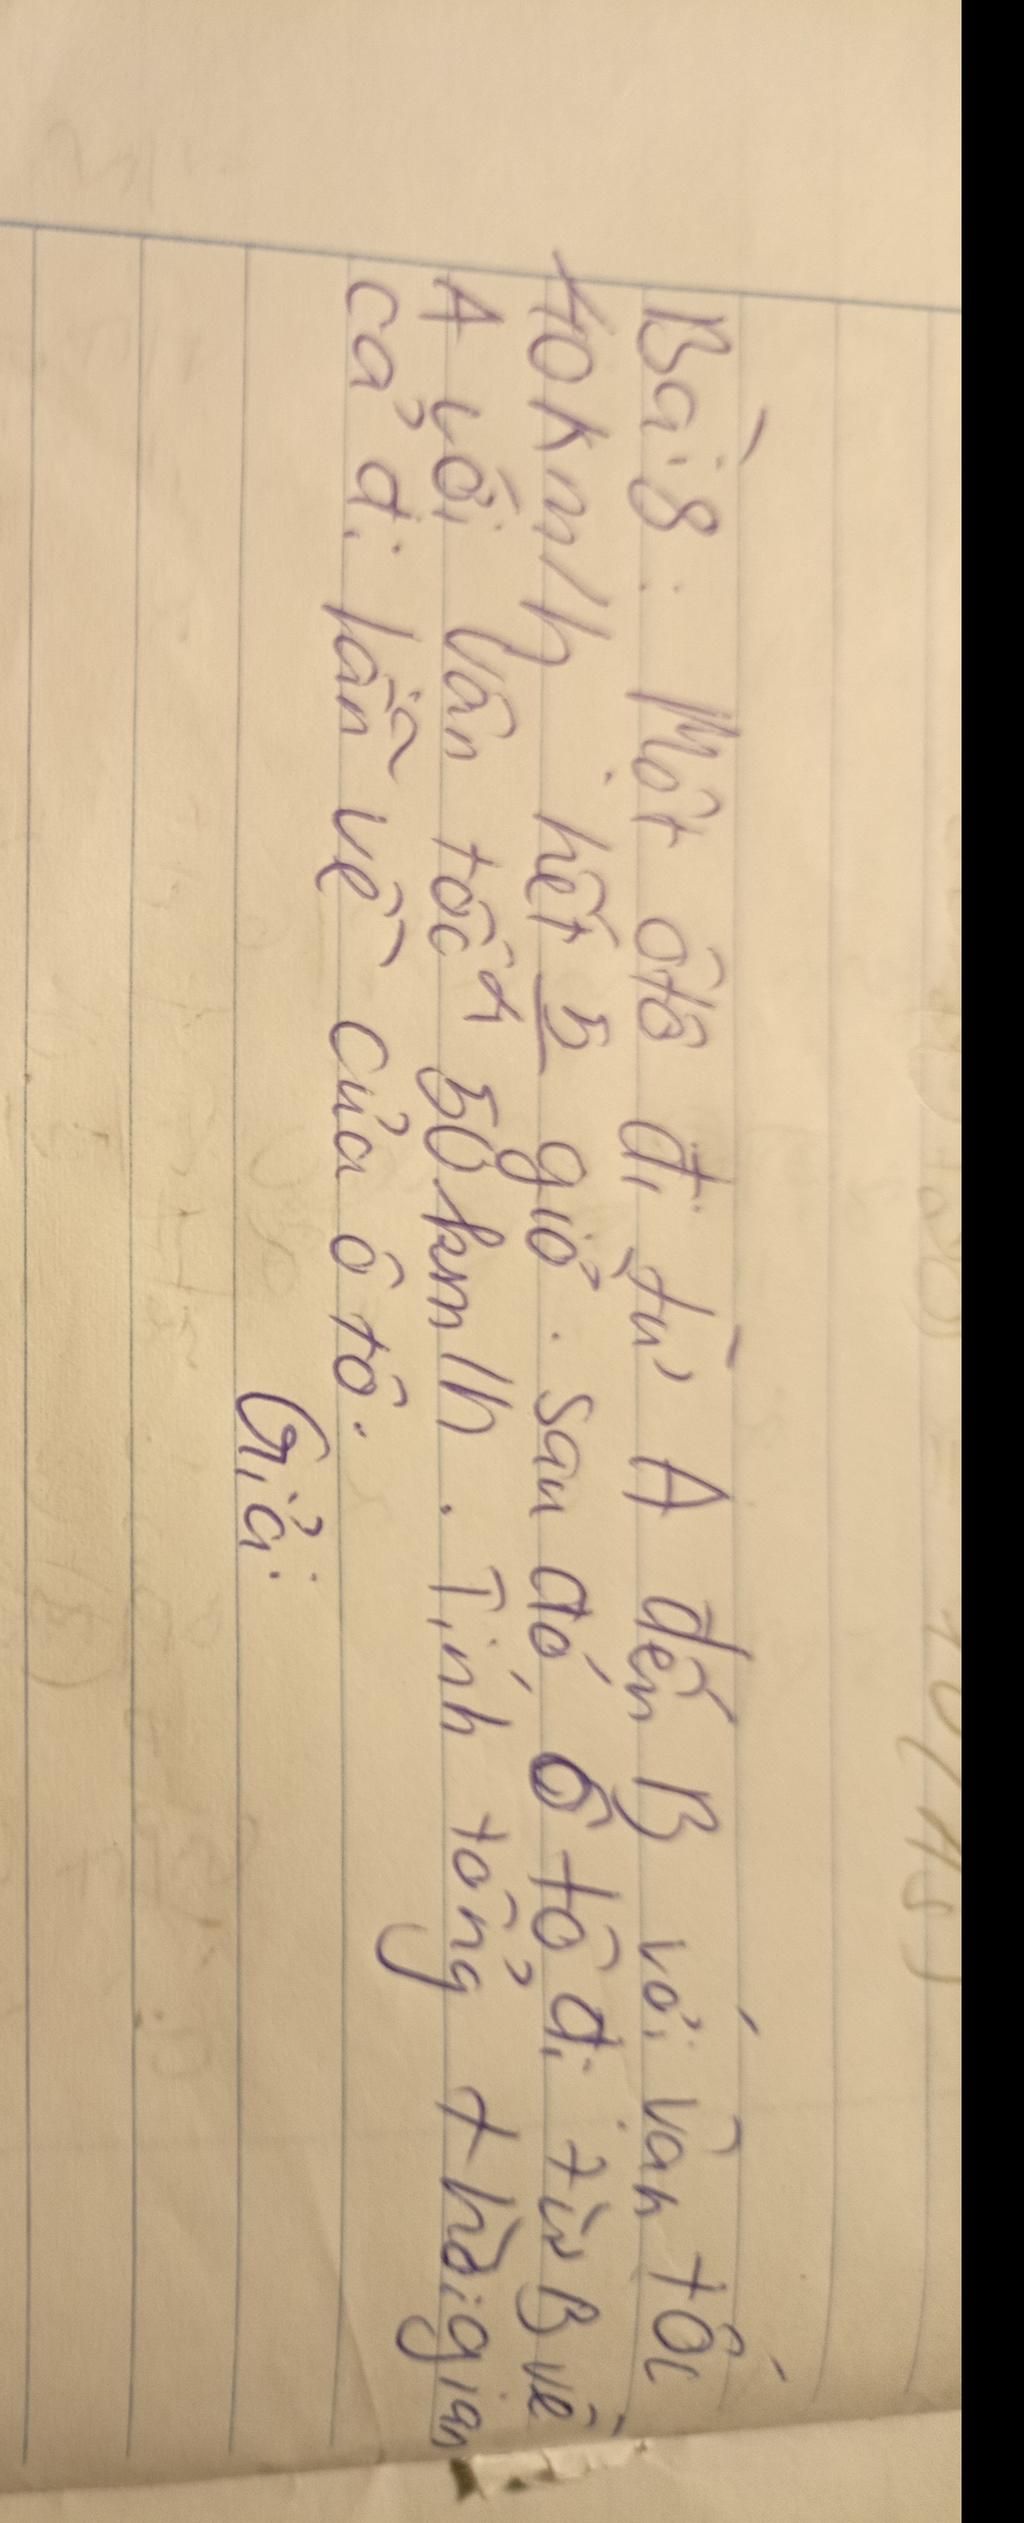 Bài 8: Một ôtô đi từ A đến B với vận tốc
40km/h hết 5/4 giờ. Sau đó ô tô đi từ B về
A với vân tốc 50km/h. Tính tổng thời gian
cả đi lẫn về của ô tô.
Giải: